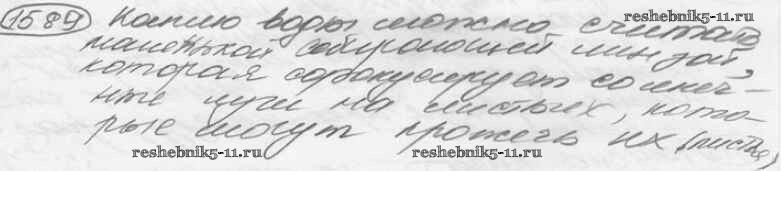 1589 Каплю воды можно считать
reshebnik5-11.ru
маленькой собирающей линзой,
которая сфокусирует солнеч-
ные лучи на листьях, кото-
рые могут прожечь их (листья)
reshebnik5-11.ru
reshebnik5-11.ru